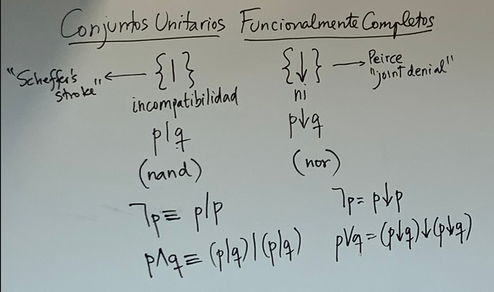 Conjuntos Unitarios Funcionalmente Completos
"Scheffer's stroke" ← {|}
incompatibilidad
p|q
(nand)
¬p ≡ p|p
p∧q ≡ (p|q)|(p|q)
{↓} → Peirce "joint denial"
ni
p↓q
(nor)
¬p = p↓p
p∨q = (p↓q)↓(p↓q)